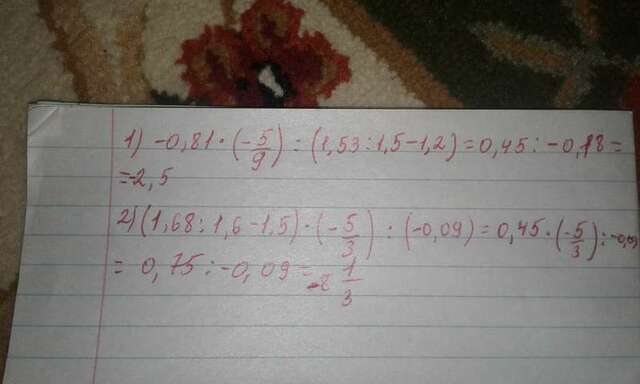 1) -0,81·(-5/9):(1,53:1,5-1,2)=0,45:-0,18=
=-2,5
2)(1,68:1,6-1,5)·(-5/3):(-0,09)=0,45·(-5/3):-0,09
= 0,75:-0,09=-8 1/3